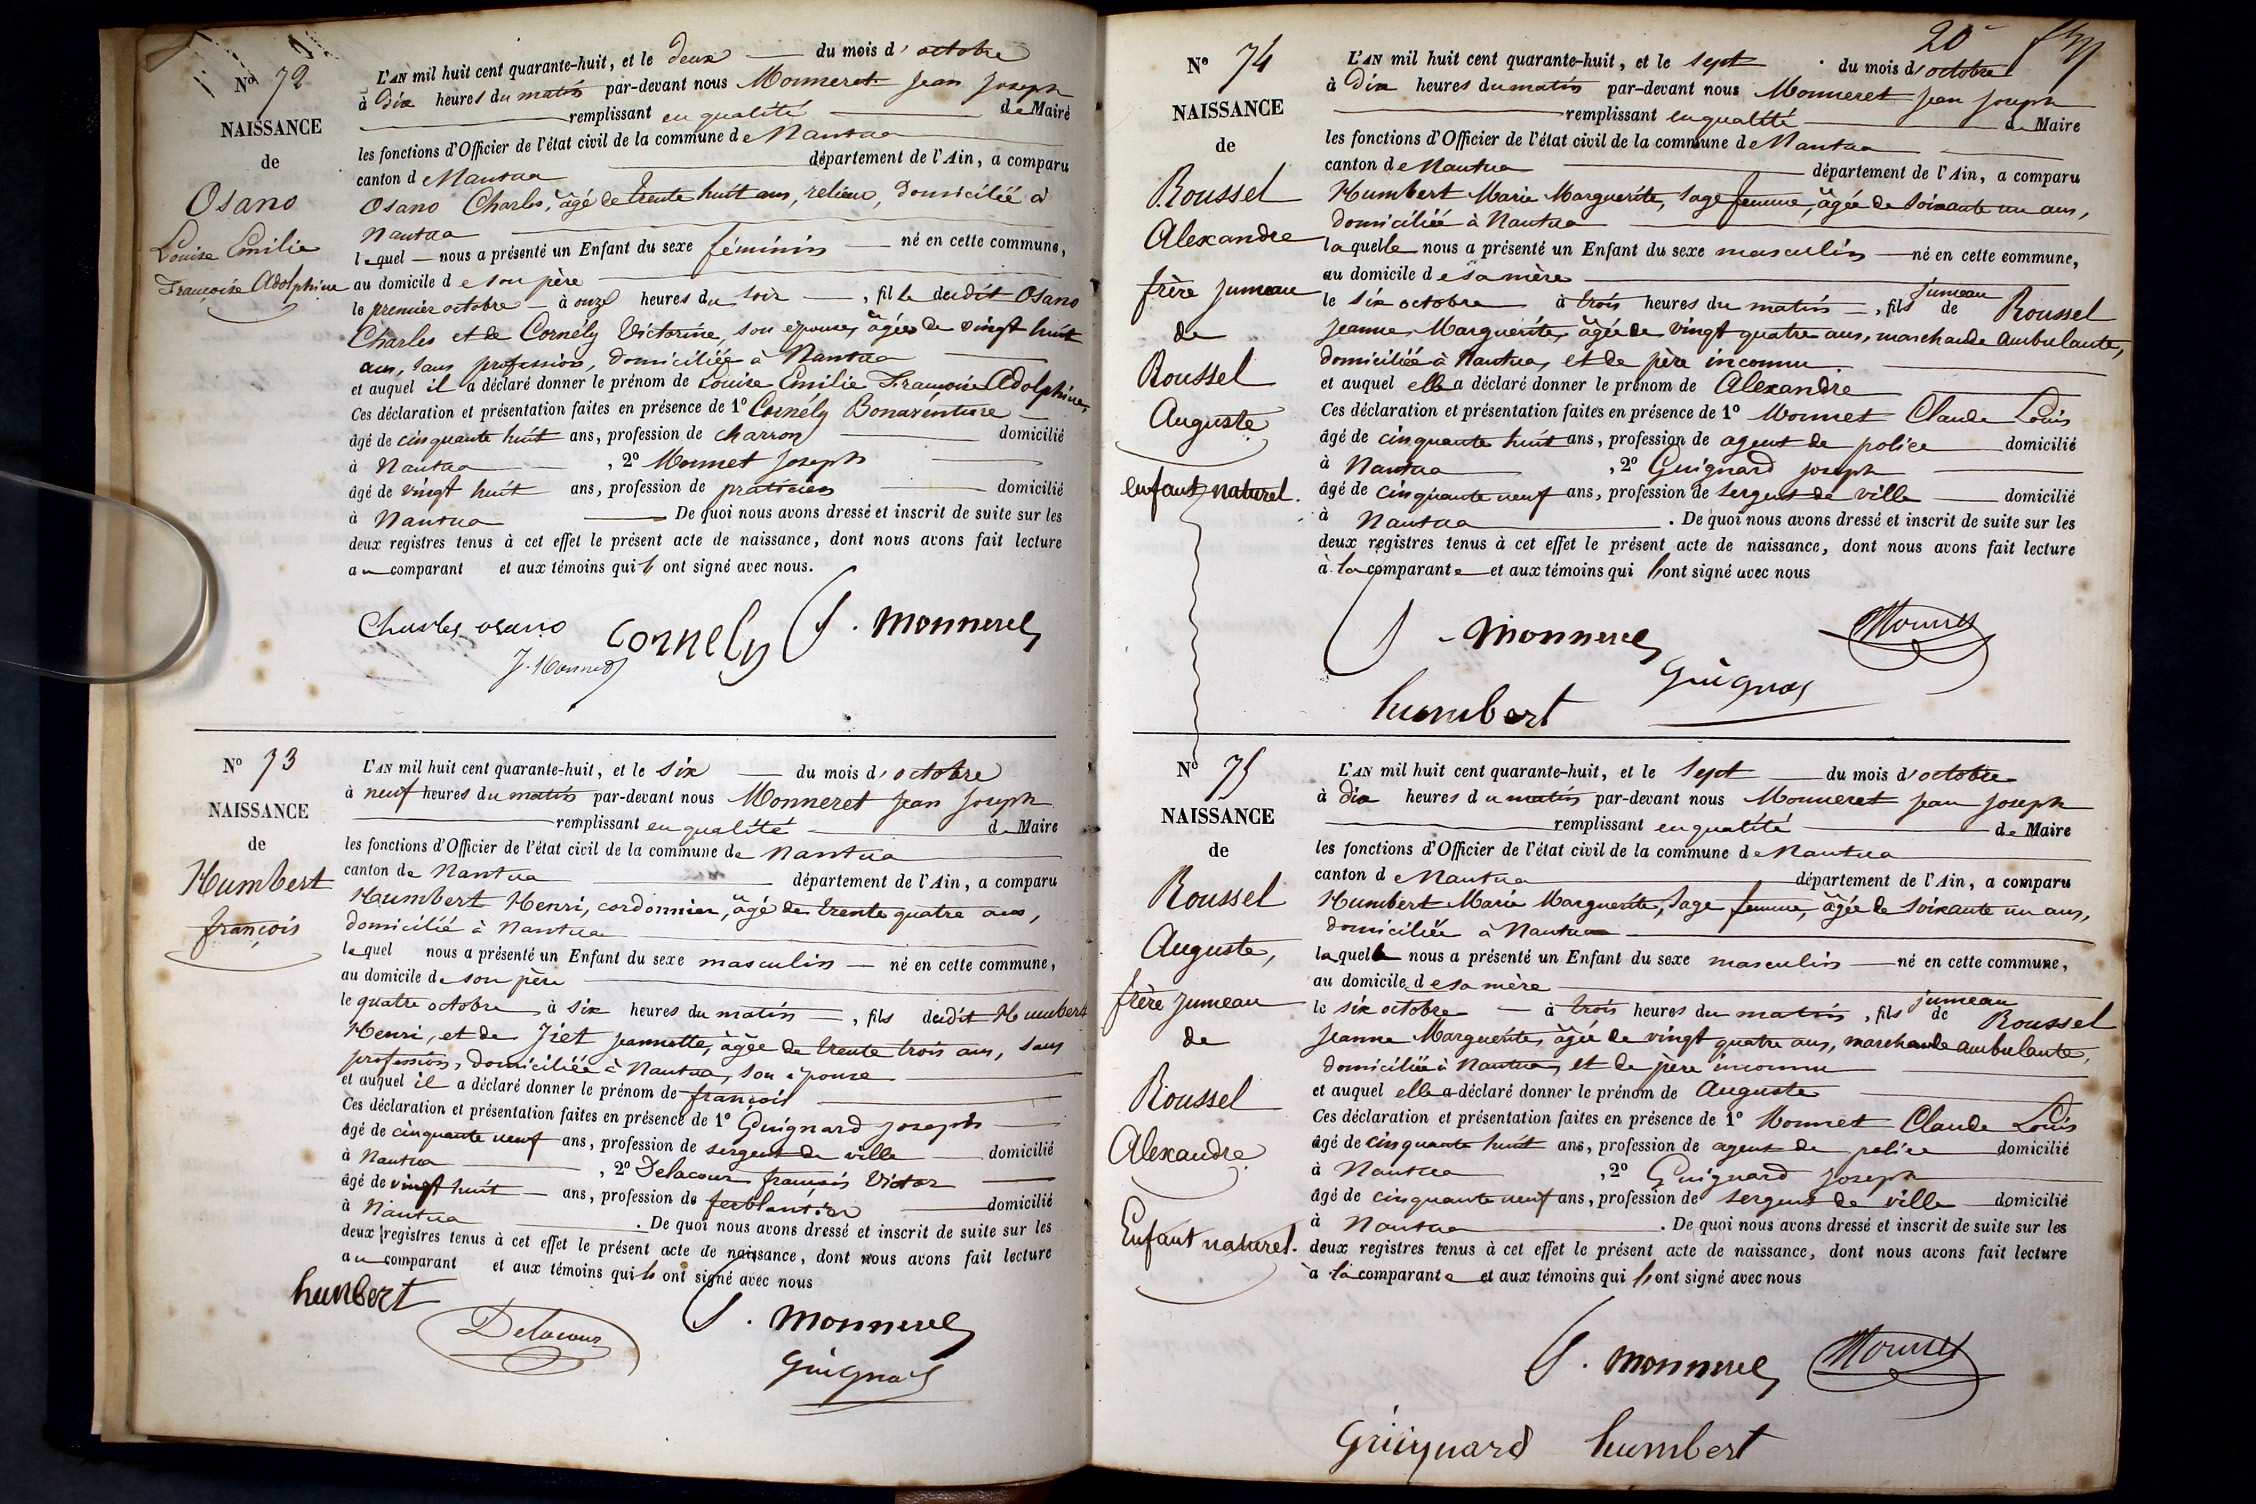 Nº 72
NAISSANCE
de
Osano
Louise Emilie
Françoise Adolphine
L'AN mil huit cent quarante-huit, et le deux du mois d'octobre
à Dix heures du matin par-devant nous Monneret Jean Joseph
remplissant en qualité de Maire
les fonctions d'Officier de l'état civil de la commune de Nantua
canton de Nantua département de l'Ain, a comparu
Osano Charles, âgé de trente huit ans, relieur, domiciliée à
Nantua
lequel nous a présenté un Enfant du sexe féminin né en cette commune,
au domicile de son père
le premier octobre à onze heures du soir, fille dudit Osano
Charles et de Cornély Victorine, son épouse, âgée de vingt huit
ans, sans profession, domiciliée à Nantua
et auquel il a déclaré donner le prénom de Louise Emilie Françoise Adolphine,
Ces déclaration et présentation faites en présence de 1º Cornély Bonaventure
âgé de cinquante huit ans, profession de charron domicilié
à Nantua, 2º Monnet Joseph
âgé de vingt huit ans, profession de praticien domicilié
à Nantua De quoi nous avons dressé et inscrit de suite sur les
deux registres tenus à cet effet le présent acte de naissance, dont nous avons fait lecture
au comparant et aux témoins qui ont signé avec nous.
Charles osano Cornely J. Monneret
J. Monnet
Nº 73
NAISSANCE
de
Humbert
françois
L'AN mil huit cent quarante-huit, et le six du mois d'octobre
à neuf heures du matin par-devant nous Monneret Jean Joseph
remplissant en qualité de Maire
les fonctions d'Officier de l'état civil de la commune de Nantua
canton de Nantua département de l'Ain, a comparu
Humbert Henri, cordonnier, âgé de trente quatre ans,
domiciliée à Nantua
lequel nous a présenté un Enfant du sexe masculin né en cette commune,
au domicile de son père
le quatre octobre à six heures du matin, fils dudit Humbert
Henri, et de Jeannette, âgée de trente trois ans, sans
profession, domiciliée à Nantua, son épouse
et auquel il a déclaré donner le prénom de françois
Ces déclaration et présentation faites en présence de 1º Guignard joseph
âgé de cinquante neuf ans, profession de sergent de ville domicilié
à Nantua, 2º Delacour françois Victor
âgé de vingt huit ans, profession de ferblantier domicilié
à Nantua. De quoi nous avons dressé et inscrit de suite sur les
deux registres tenus à cet effet le présent acte de naissance, dont nous avons fait lecture
au comparant et aux témoins qui ont signé avec nous
humbert
Delacour J. Monneret
Guignard
20
Nº 74
NAISSANCE
de
Roussel
Alexandre
frère jumeau
de
Roussel
Auguste
enfant naturel.
L'AN mil huit cent quarante-huit, et le sept du mois d'octobre
à Dix heures du matin par-devant nous Monneret Jean Joseph
remplissant en qualité de Maire
les fonctions d'Officier de l'état civil de la commune de Nantua
canton de Nantua département de l'Ain, a comparu
Humbert Marie Marguerite, sage femme, âgée de soixante un ans,
domiciliée à Nantua
laquelle nous a présenté un Enfant du sexe masculin né en cette commune,
au domicile de sa mère
le six octobre à trois heures du matin, fils jumeau de Roussel
Jeanne Marguerite, âgée de vingt quatre ans, marchande ambulante,
domiciliée à Nantua, et de père inconnu.
et auquel elle a déclaré donner le prénom de Alexandre
Ces déclaration et présentation faites en présence de 1º Monnet Claude Louis
âgé de cinquante huit ans, profession de agent de police domicilié
à Nantua, 2º Guignard joseph
âgé de cinquante neuf ans, profession de sergent de ville domicilié
à Nantua. De quoi nous avons dressé et inscrit de suite sur les
deux registres tenus à cet effet le présent acte de naissance, dont nous avons fait lecture
à la comparante et aux témoins qui ont signé avec nous
J. Monneret Monnet
Guignard
humbert
Nº 75
NAISSANCE
de
Roussel
Auguste,
frère jumeau
de
Roussel
Alexandre.
Enfant naturel.
L'AN mil huit cent quarante-huit, et le sept du mois d'octobre
à Dix heures du matin par-devant nous Monneret Jean Joseph
remplissant en qualité de Maire
les fonctions d'Officier de l'état civil de la commune de Nantua
canton de Nantua département de l'Ain, a comparu
Humbert Marie Marguerite, sage femme, âgée de soixante un ans,
domiciliée à Nantua
laquelle nous a présenté un Enfant du sexe masculin né en cette commune,
au domicile de sa mère
le six octobre à trois heures du matin, fils jumeau de Roussel
Jeanne Marguerite, âgée de vingt quatre ans, marchande ambulante,
domiciliée à Nantua, et de père inconnu
et auquel elle a déclaré donner le prénom de Auguste
Ces déclaration et présentation faites en présence de 1º Monnet Claude Louis
âgé de cinquante huit ans, profession de agent de police domicilié
à Nantua, 2º Guignard Joseph
âgé de cinquante neuf ans, profession de sergent de ville domicilié
à Nantua. De quoi nous avons dressé et inscrit de suite sur les
deux registres tenus à cet effet le présent acte de naissance, dont nous avons fait lecture
à la comparante et aux témoins qui ont signé avec nous
J. Monneret Monnet
Guignard humbert